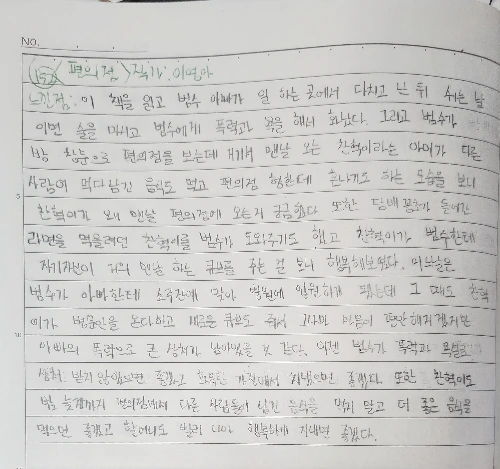 No.
152 < 편의점 > 작가: 이영아
느낀점: 이 책을 읽고 범수 아빠가 일 하는 곳에서 다치고 난 뒤 쉬는 날
이면 술을 마시고 범수에게 폭력과 욕을 해서 화났다. 그리고 범수가
방 창문으로 편의점을 보는데 거기서 맨날 오는 찬혁이라는 아이가 다른
사람이 먹다 남긴 음식도 먹고 편의점 형한테 혼나기도 하는 모습을 보니
찬혁이가 왜 맨날 편의점에 오는지 궁금했다. 또한 담배꽁초가 들어간
라면을 먹을려던 찬혁이를 범수가 도와주기도 했고 찬혁이가 범수한테
자기자신이 거의 맨날 하는 큐브를 주는 걸 보니 행복해보였다. 마지막은
범수가 아빠한테 소주잔에 맞아 병원에 입원하게 됐는데 그 때도 찬혁
이가 병문안을 온다하고 새로운 큐브도 줘서 그나마 마음이 편안해지겠지만
아빠의 폭력으로 큰 상처가 남아있을 것 같다. 이젠 범수가 폭력과 욕설로
상처 받지 않았으면 좋겠고 화목한 가정에서 지냈으면 좋겠다. 또한 찬혁이도
밤 늦게까지 편의점에서 다른 사람들이 남긴 음식을 먹지 말고 더 좋은 음식을
먹으면 좋겠고 할머니도 빨리 나아 행복하게 지내면 좋겠다.